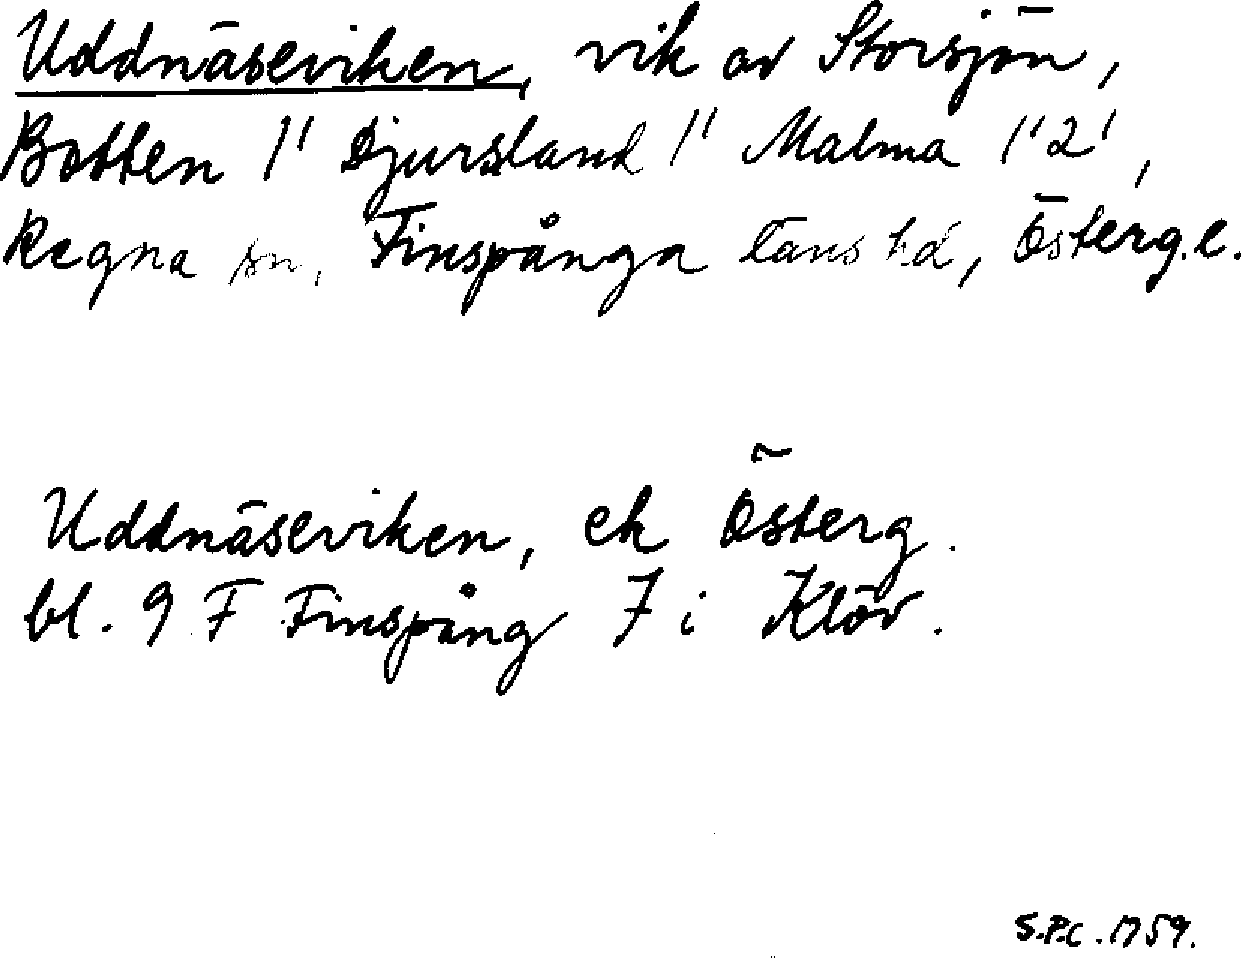 Uddnäseviken, vik av Storsjön,
Botten 1' Djursland 1' Malma 1'2',
Regna sn, Finspånga läns hd, Österg.l.
Uddnäseviken, ek Österg.
bl. 9 F Finspång 7 i Klöv.
S.P.C. 1759.